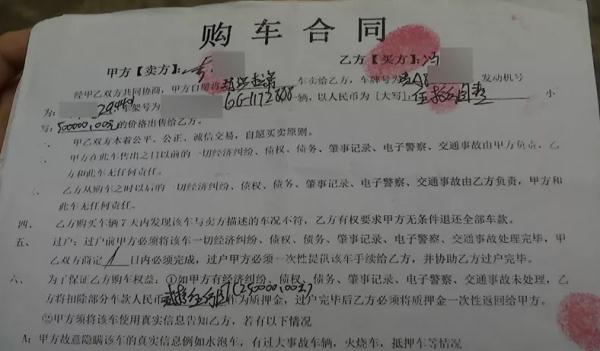 购车合同
甲方【卖方】: 乙方【买方】: 冯
经甲乙双方共同协商,甲方自愿将 车卖给乙方,车牌号为 发动机号
为: 架号为 一辆,以人民币为【大写】: 伍拾 小
写: 500000,00元的价格出售给乙方。
甲乙双方本着公平、公正、诚信交易,自愿买卖原则。
甲方在此车售出之日以前的一切经济纠纷、债权、债务、肇事记录、电子警察、交通事故由甲方负责,乙
方和此车无任何责任。
乙方从购车之时以后的一切经济纠纷、债权、债务、肇事记录、电子警察、交通事故由乙方负责,甲方和
此车无任何责任。
四、 乙方购买车辆7天内发现该车与卖方描述的车况不符,乙方有权要求甲方无条件退还全部车款。
五、 过户:过户前甲方必须将车一切经济纠纷、债权、债务、肇事记录、电子警察、交通事故处理完毕,甲
乙双方商定 日内必须完成,过户甲方必须一次性提供该车手续给乙方,并协助乙方过户完毕。
六、 为了保证乙方购车权益:①如甲方有经济纠纷、债权、债务、肇事记录、电子警察、交通事故未处理,乙
方将扣除部分车款人民币 (250000,00元)作为质押金,过户完毕后乙方必须将质押金一次性返回给甲方。
②甲方须将该车使用真实信息告知乙方,若有以下情况
A:甲方故意隐瞒该车的真实信息例如水泡车,有过大事故车辆,火烧车,抵押车等情况